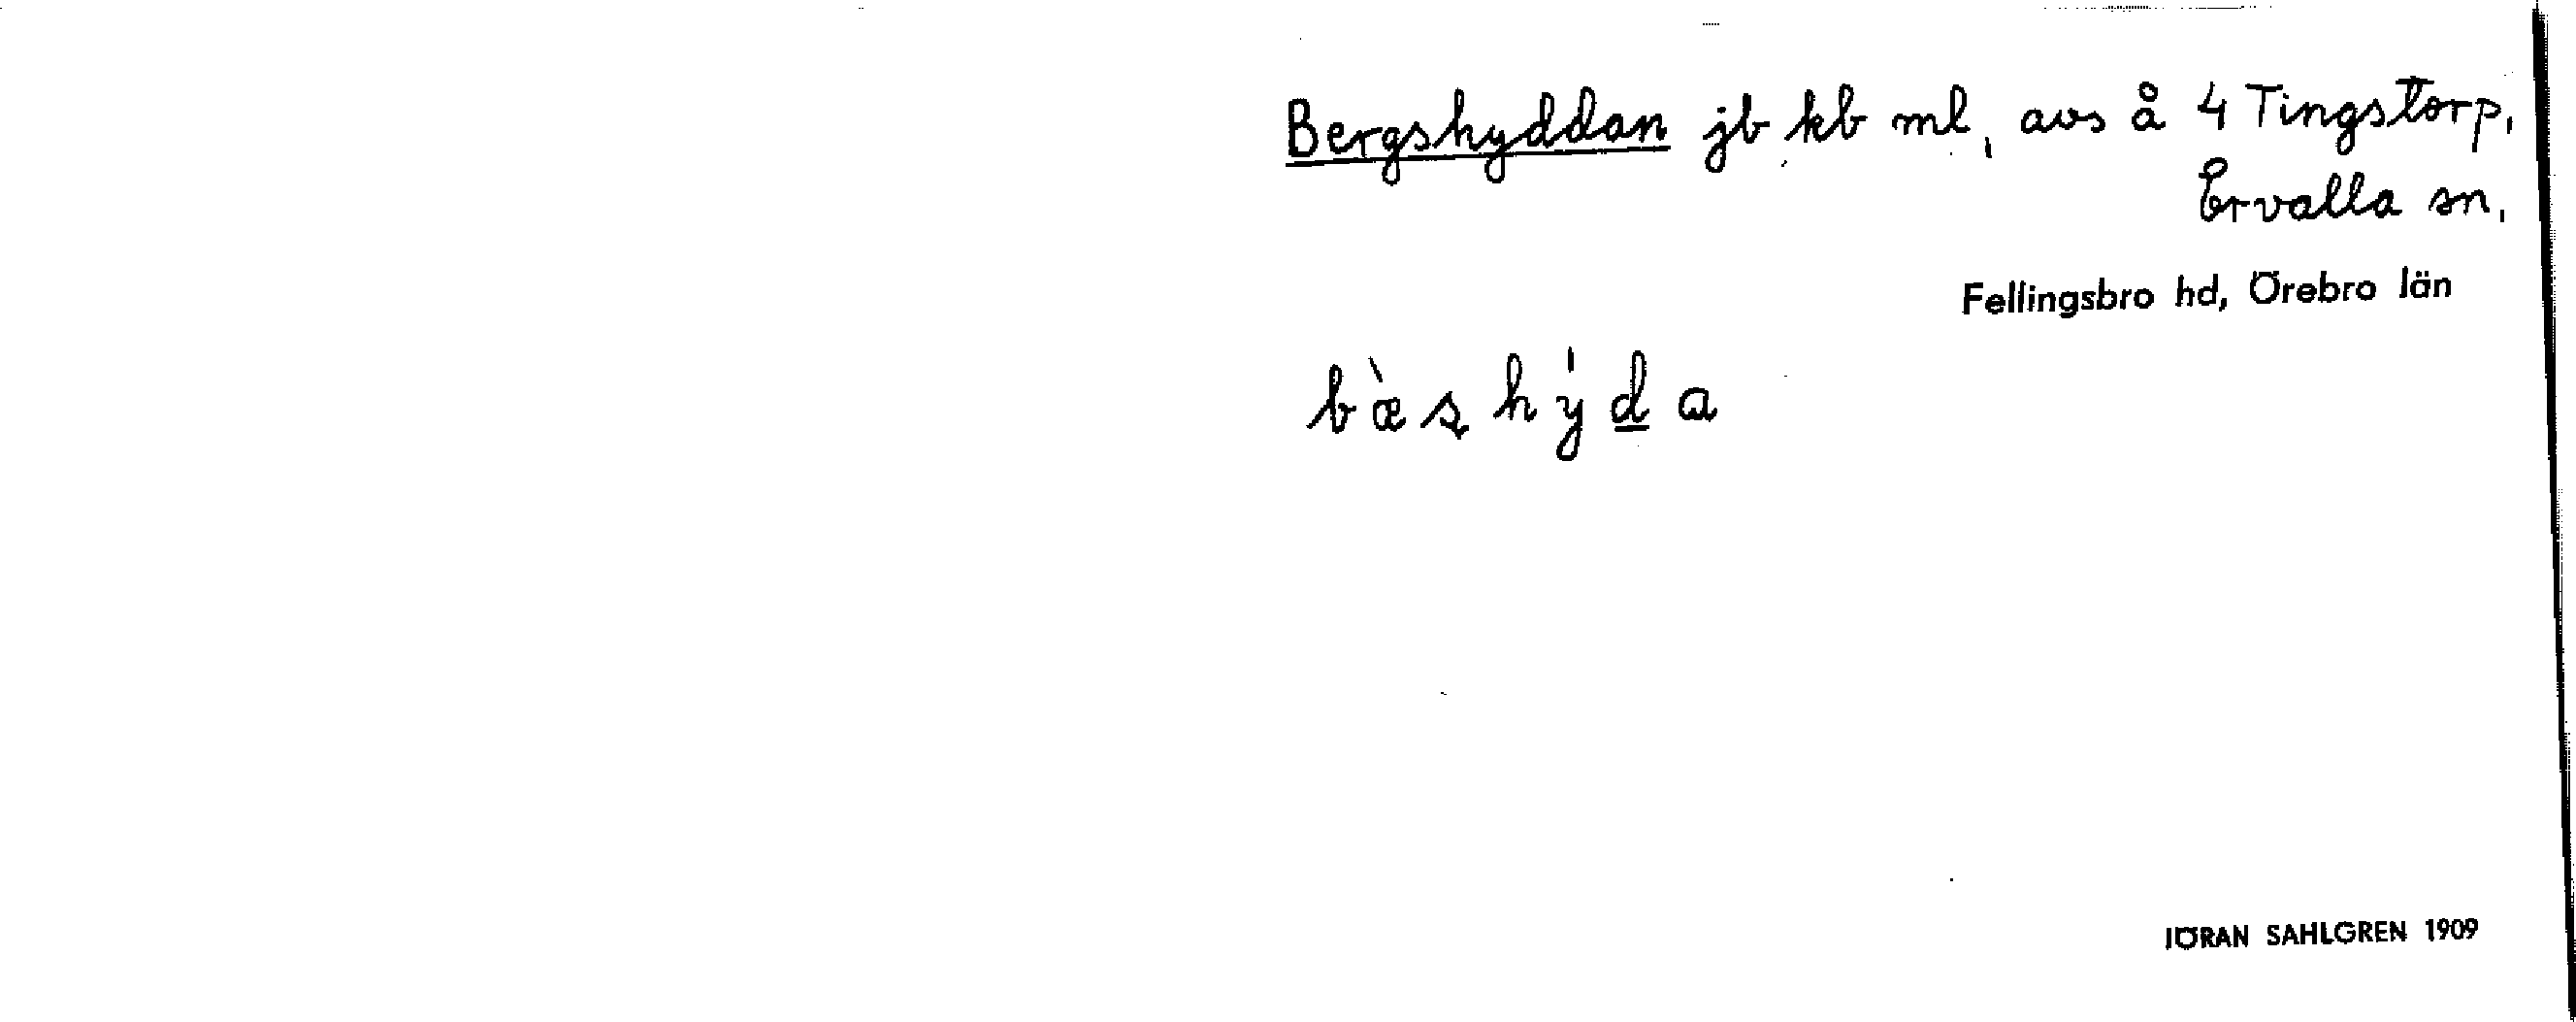 Bergshyddan jb kb ml, avs å 4 Tingstorp,
Ervalla sn.
Fellingsbro hd, Örebro län
bæ̀ʂhy̍da
JÖRAN SAHLGREN 1909